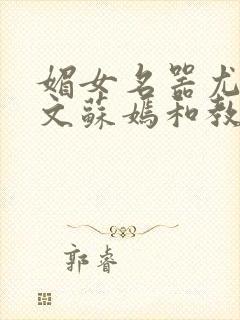 媚女名器尤
文蘇媽和教
郭睿